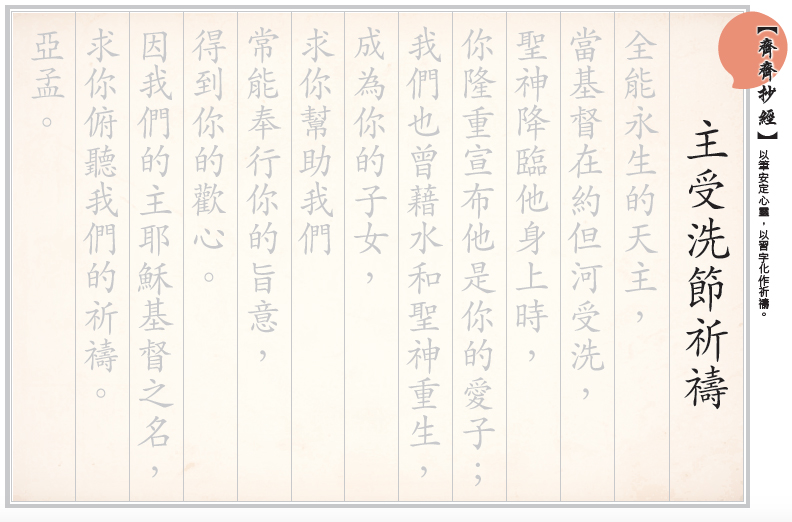 【齊齊抄經】以筆安定心靈，以習字化作祈禱。
主受洗節祈禱
全能永生的天主，
當基督在約但河受洗，
聖神降臨他身上時，
你隆重宣布他是你的愛子；
我們也曾藉水和聖神重生，
成為你的子女，
求你幫助我們
常能奉行你的旨意，
得到你的歡心。
因我們的主耶穌基督之名，
求你俯聽我們的祈禱。
亞孟。